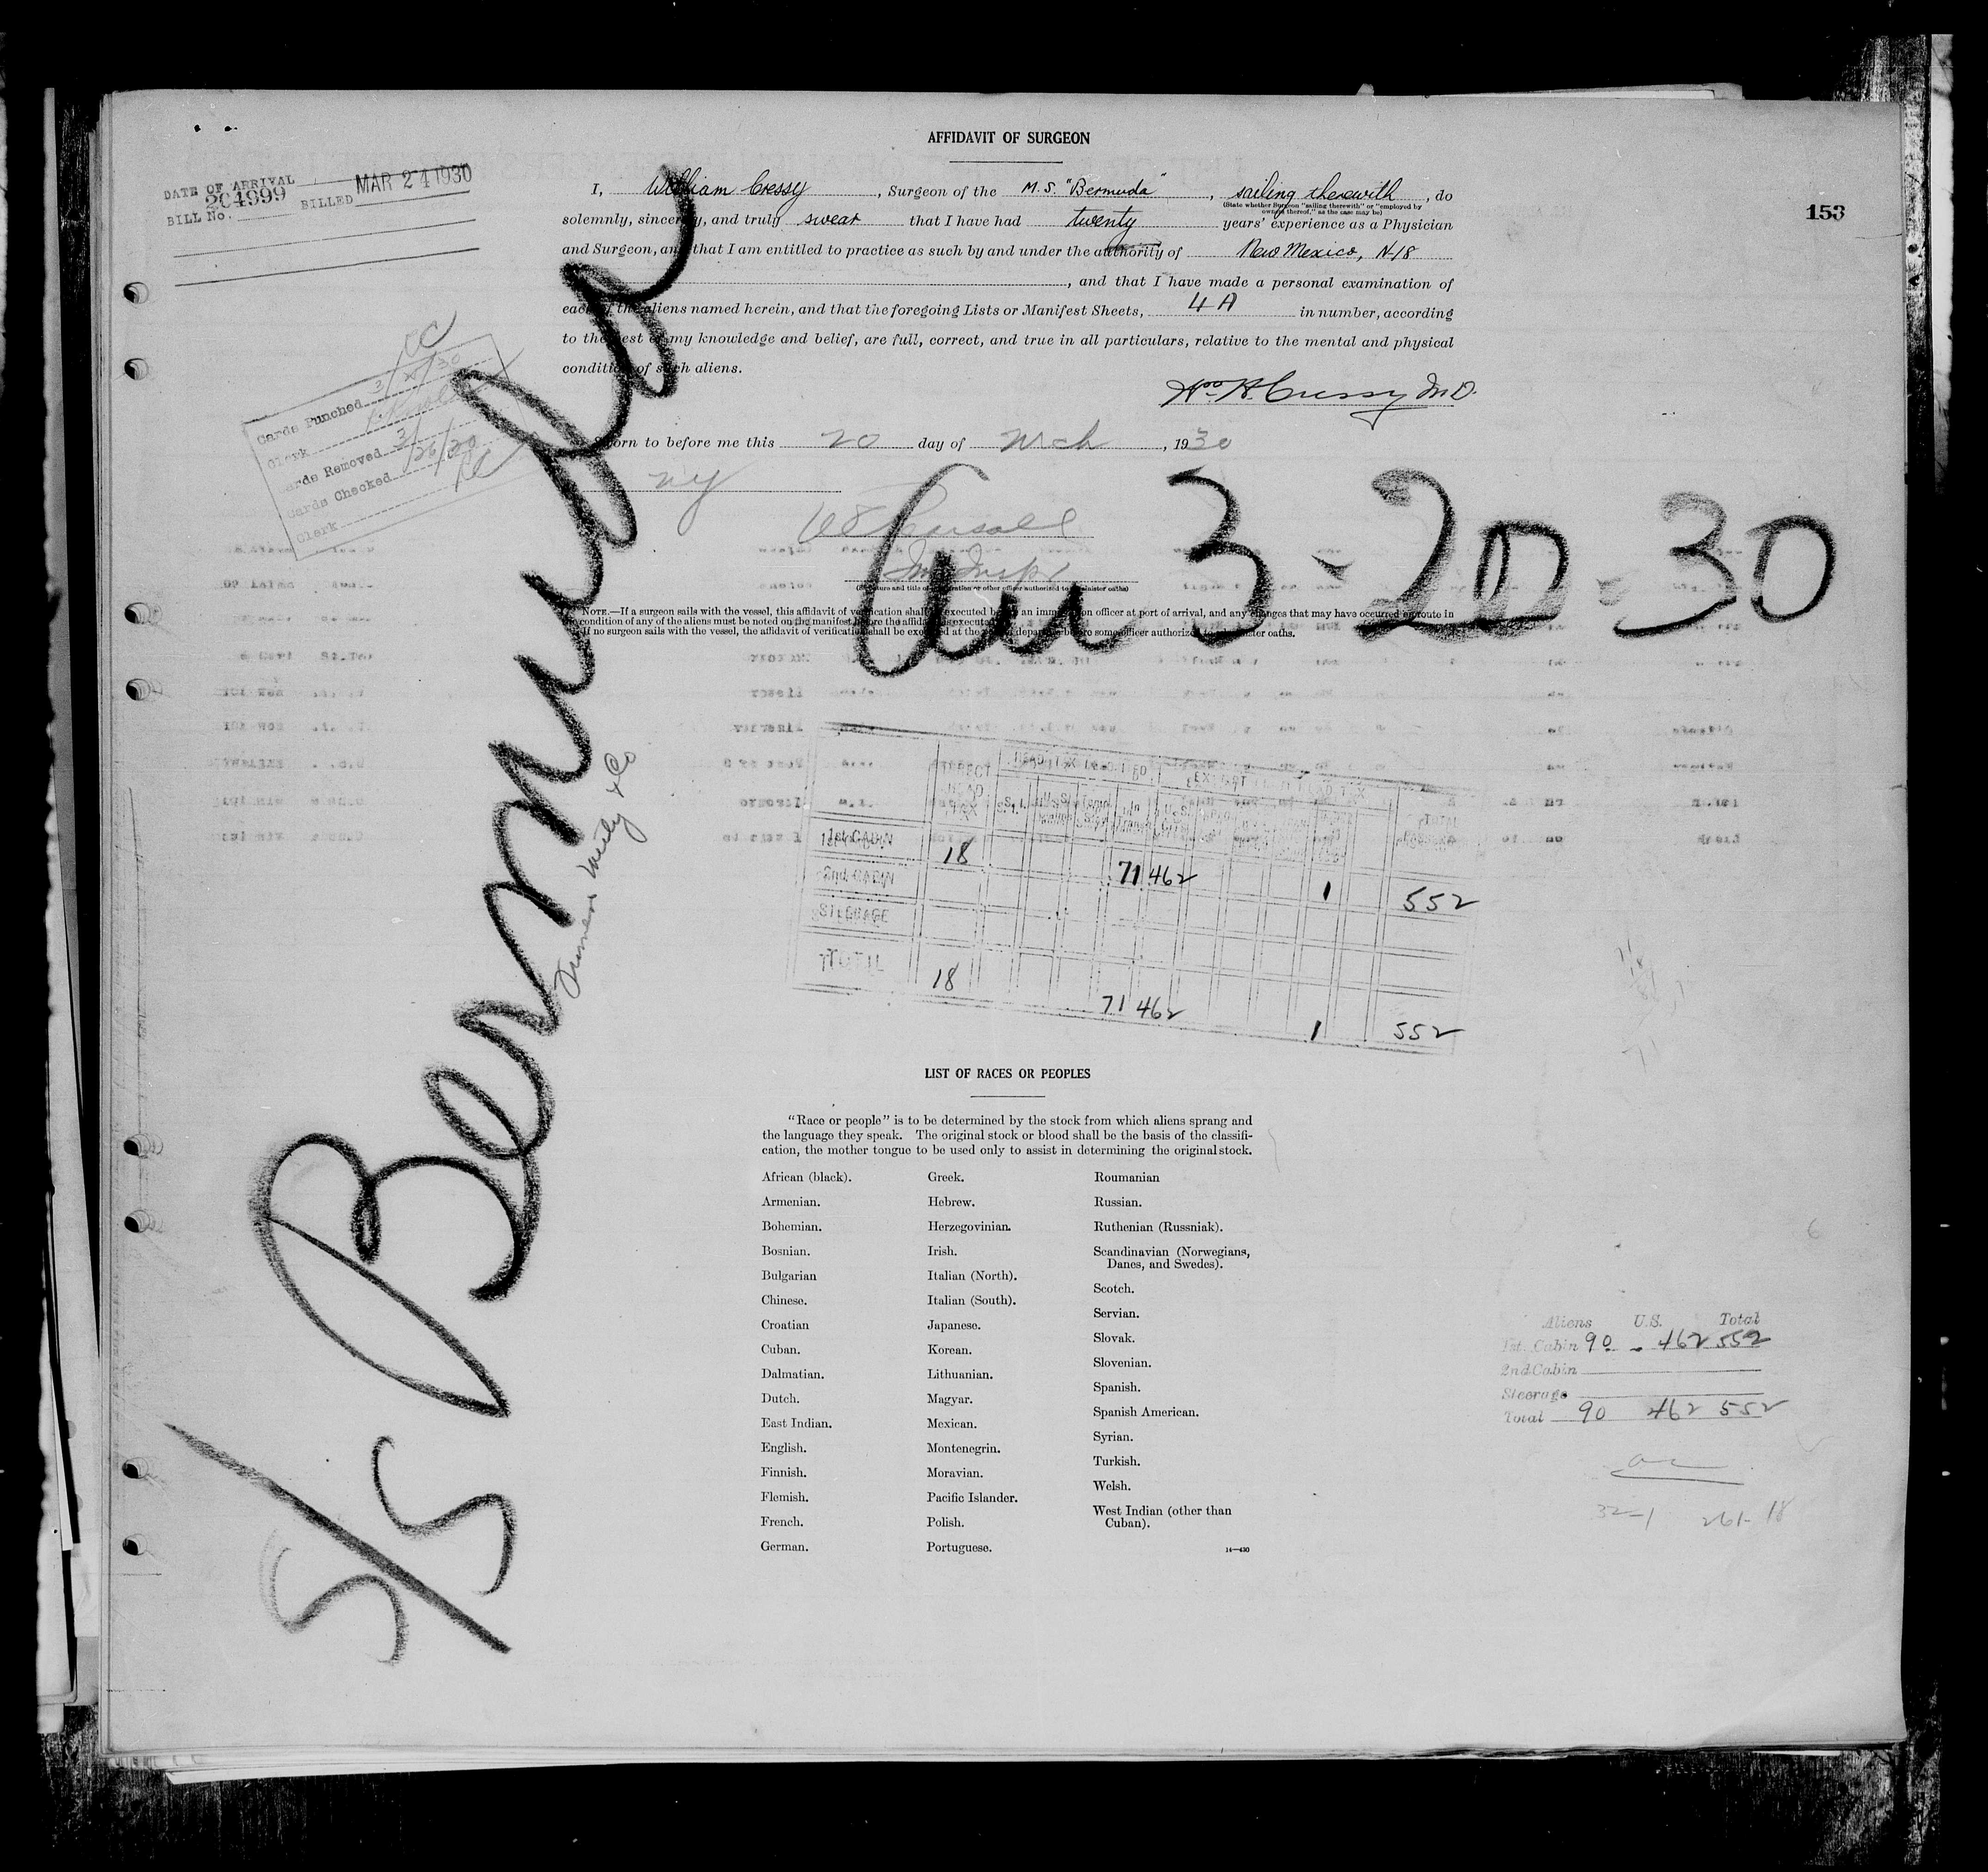 AFFIDAVIT OF SURGEON
DATE OF ARRIVAL
204999
BILL No. BILLED MAR 24 1930
153
I, William Cressy, Surgeon of the M.S. "Bermuda", sailing therewith, do
(State whether Surgeon "sailing therewith" or "employed by
owners thereof," as the case may be)
solemnly, sincerely, and truly swear that I have had twenty years' experience as a Physician
and Surgeon, and that I am entitled to practice as such by and under the authority of New Mexico, N-18
, and that I have made a personal examination of
each of the aliens named herein, and that the foregoing Lists or Manifest Sheets, 4 A in number, according
to the best of my knowledge and belief, are full, correct, and true in all particulars, relative to the mental and physical
condition of such aliens.
Wm H. Cressy M.D.
Sworn to before me this 20 day of Mch, 1930
NY
Im Inspr
(Signature and title of immigration or other officer authorized to administer oaths)
NOTE.—If a surgeon sails with the vessel, this affidavit of verification shall be executed before an immigration officer at port of arrival, and any changes that may have occurred en route in
the condition of any of the aliens must be noted on the manifest before the affidavit is executed.
If no surgeon sails with the vessel, the affidavit of verification shall be executed at the port of departure before some officer authorized to administer oaths.
Cards Punched 3/25/30
Clerk
Cards Removed
Cards Checked 3/26/30
Clerk
S/S Bermuda
Furness Withy & Co
Arr 3-20-30
1st CABIN 18 71 462 1 552
2nd CABIN
STEERAGE
TOTAL 18 71 462 1 552
LIST OF RACES OR PEOPLES
"Race or people" is to be determined by the stock from which aliens sprang and
the language they speak. The original stock or blood shall be the basis of the classifi-
cation, the mother tongue to be used only to assist in determining the original stock.
African (black).
Armenian.
Bohemian.
Bosnian.
Bulgarian
Chinese.
Croatian
Cuban.
Dalmatian.
Dutch.
East Indian.
English.
Finnish.
Flemish.
French.
German.
Greek.
Hebrew.
Herzegovinian.
Irish.
Italian (North).
Italian (South).
Japanese.
Korean.
Lithuanian.
Magyar.
Mexican.
Montenegrin.
Moravian.
Pacific Islander.
Polish.
Portuguese.
Roumanian
Russian.
Ruthenian (Russniak).
Scandinavian (Norwegians,
Danes, and Swedes).
Scotch.
Servian.
Slovak.
Slovenian.
Spanish.
Spanish American.
Syrian.
Turkish.
Welsh.
West Indian (other than
Cuban).
14—430
Aliens U.S. Total
1st. Cabin 90 - 462 552
2nd Cabin
Steerage
Total 90 462 552
32-1 261-18